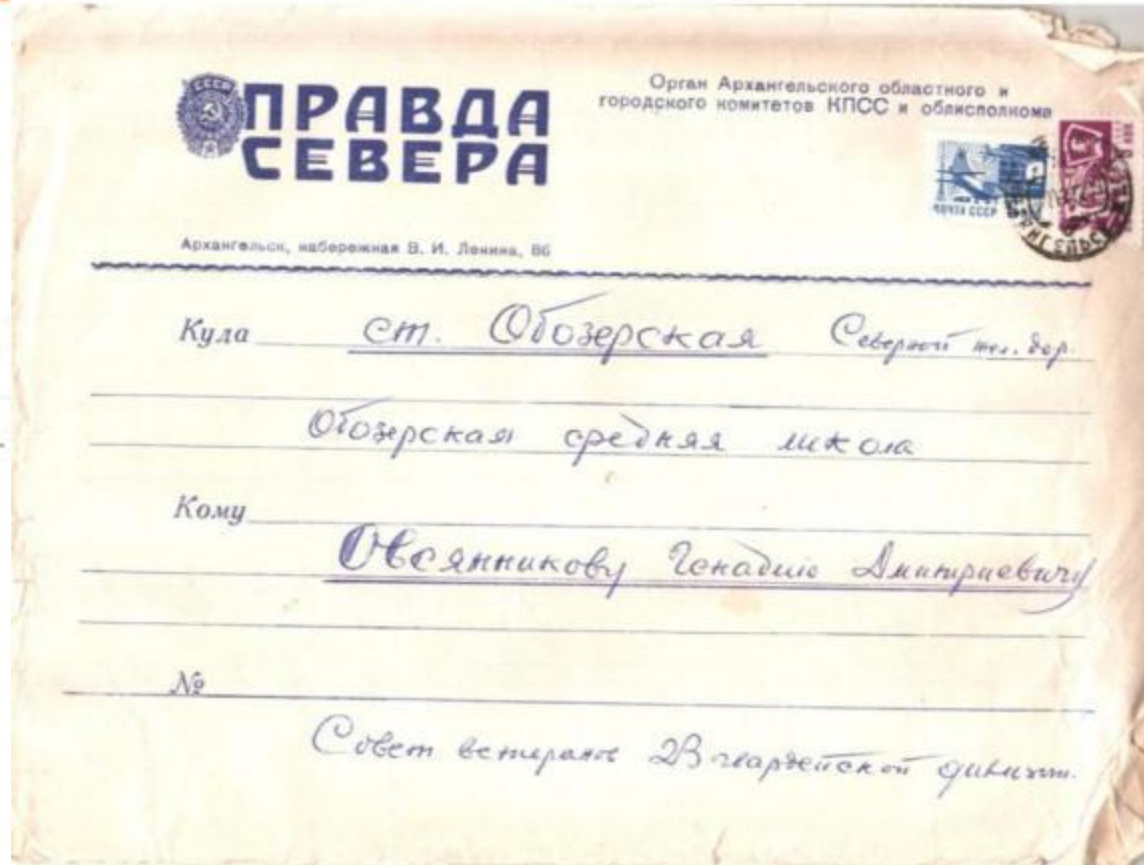 СССР
ПРАВДА
СЕВЕРА
Орган Архангельского областного и
городского комитетов КПСС и облисполкома
ПОЧТА СССР
Архангельск, набережная В. И. Ленина, 86
Куда ст. Обозерская Северной жел. дор.
Обозерская средняя школа
Кому
Овсянникову Генадию Дмитриевичу
№
Совет ветеранов 23 гвардейской дивизии.